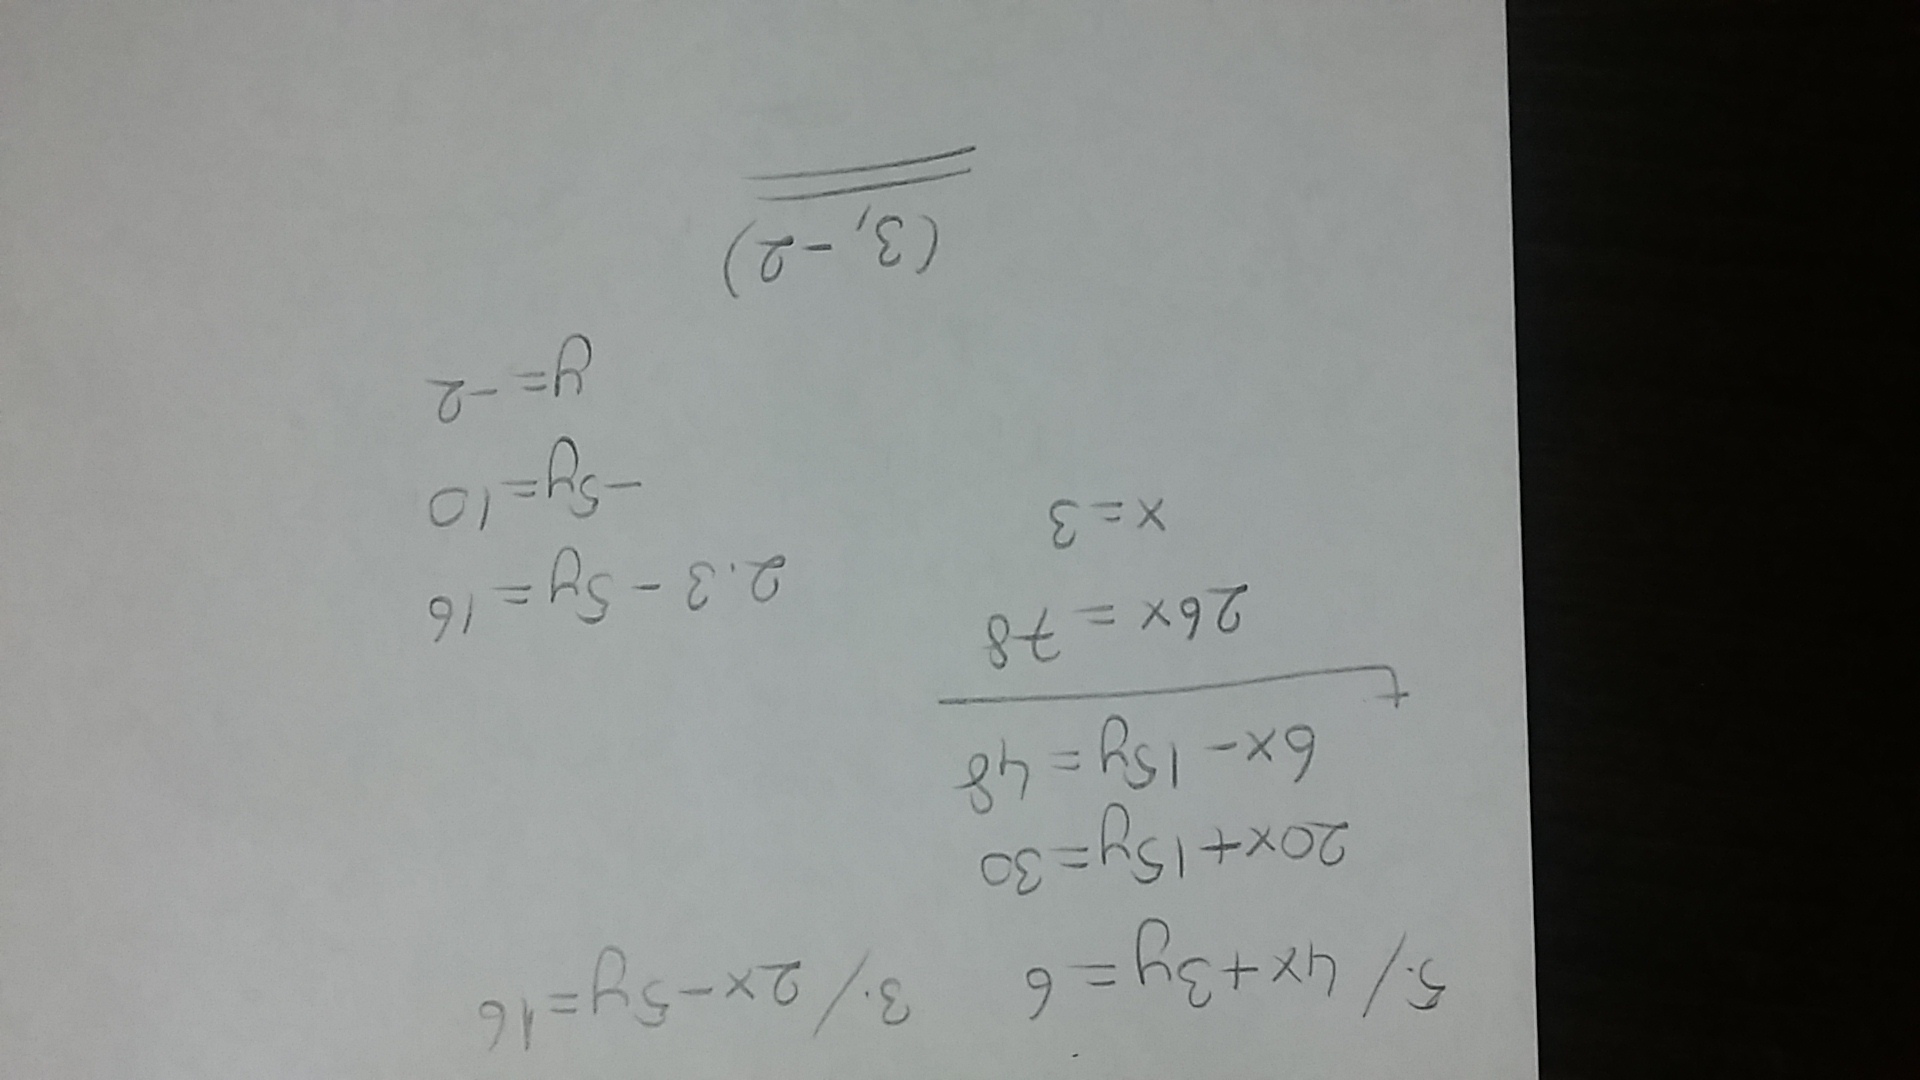 5·/ 4x+3y=6 3·/ 2x-5y=16
20x+15y=30
6x-15y=48
+
26x=78
x=3
2·3-5y=16
-5y=10
y=-2
(3,-2)